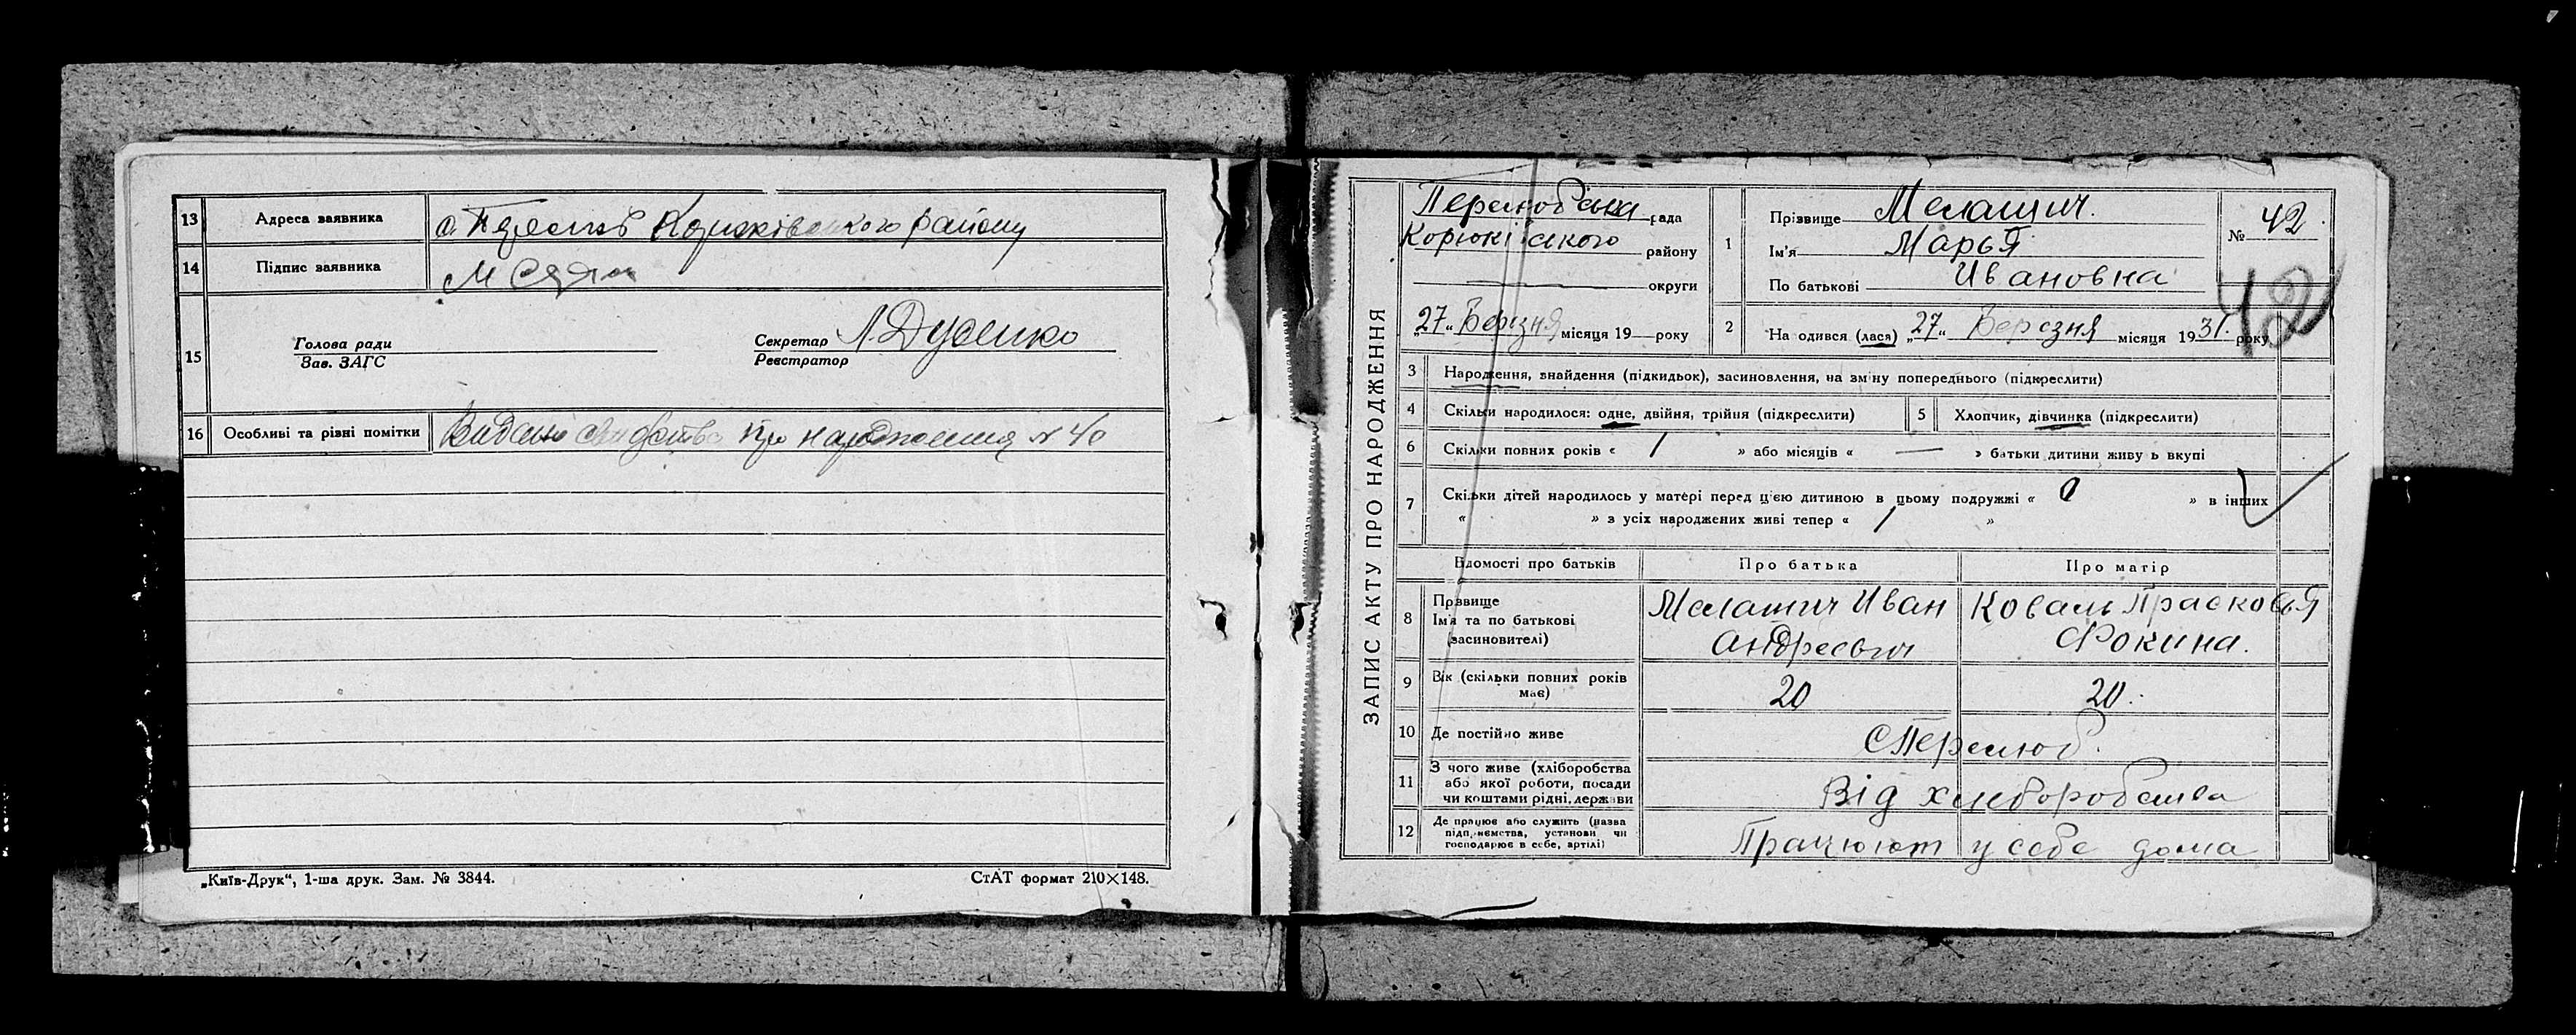 13 Адреса заявника с. Перелюб Корюківського району
14 Підпис заявника
15 Голова ради
Зав. ЗАГС
Секретар
Реєстратор
16 Особливі та рівні помітки Видано свидоство про народження № 40
„Київ-Друк“, 1-ша друк. Зам. № 3844.
СтАТ формат 210×148.
ЗАПИС АКТУ ПРО НАРОДЖЕННЯ
Перелюбська рада
Корюківського району
— округи
„27“ Березня місяця 19 року
1 Прізвище Мелащич.
Ім'я Марья
По батькові Ивановна
№ 42.
42
2 На одився (лася) „27“ Березня місяця 1931. року
3 Народження, знайдення (підкидьок), засиновлення, на зміну попереднього (підкреслити)
4 Скільки народилося: одне, двійня, трійня (підкреслити)
5 Хлопчик, дівчинка (підкреслити)
6 Скільки повних років « 1 » або місяців « — » батьки дитини живу ь вкупі
7 Скільки дітей народилось у матері перед цією дитиною в цьому подружжі « 0 » в інших
« » з усіх народжених живі тепер « 1 »
Відомості про батьків Про батька Про матір
8 Прізвище
Ім'я та по батькові
(засиновителі)
Мелащич Иван
Андреевич
Коваль Прасковья
Фокина.
9 Вік (скільки повних років
має)
20 20.
10 Де постійно живе С Перелюб.
11 З чого живе (хліборобства
або якої роботи, посади
чи коштами рідні, держави
Від хлеборобства
12 Де працює або служить (назва
підприємства, установи чи
господарює в себе, артілі)
Працюют у себе дома